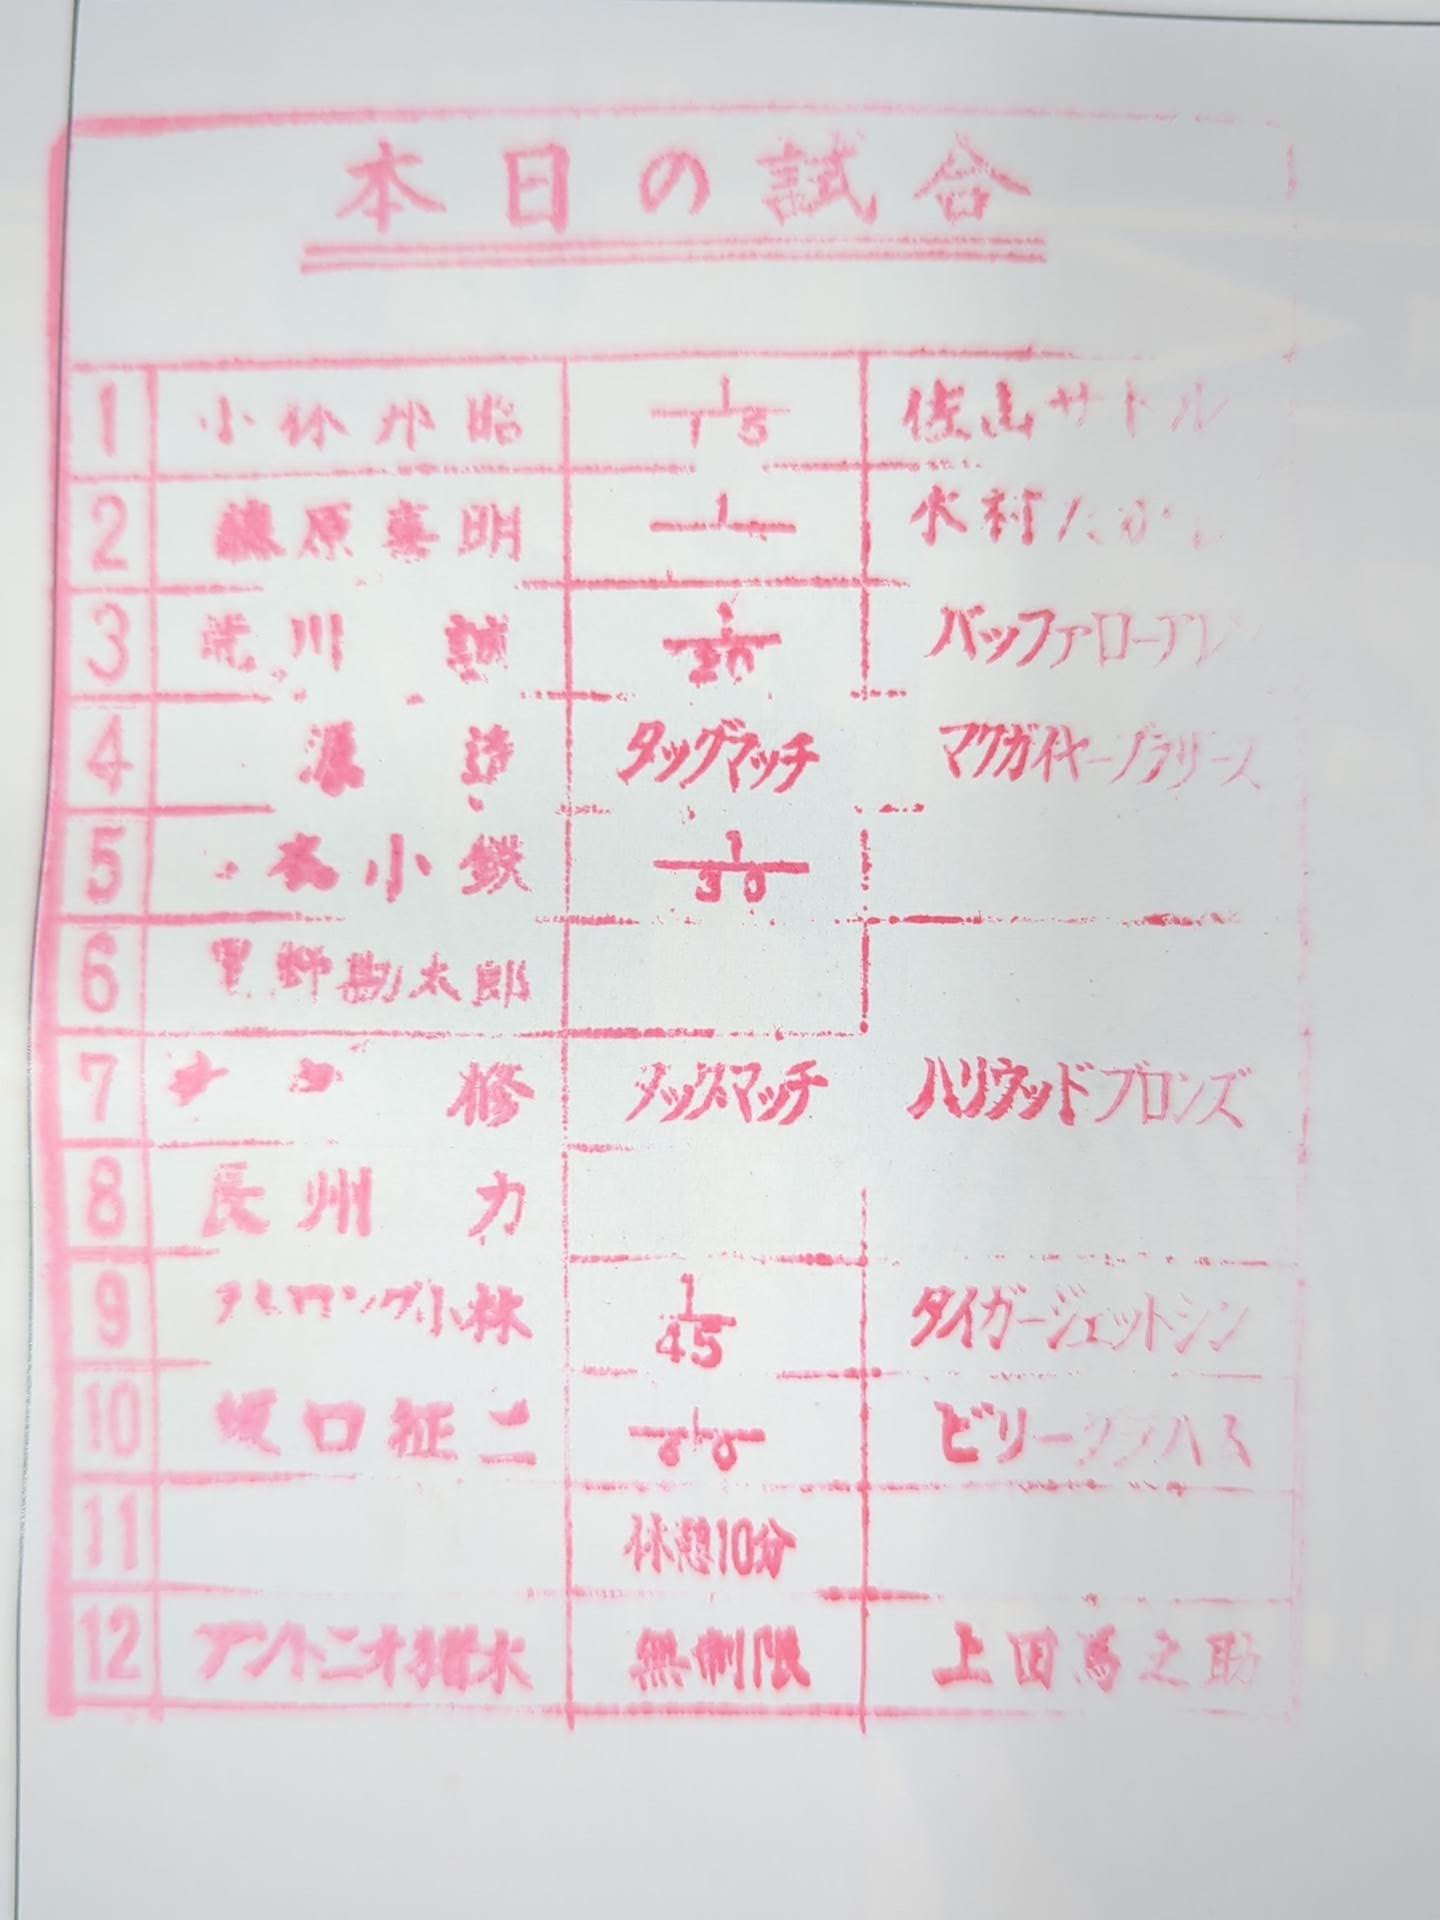 本日の試合
1 小林邦昭 1 15 佐山サトル
2 藤原喜明 1 木村たかし
3 荒川 誠 1 20 バッファローアレン
4 源造 タッグマッチ マクガイヤーブラザース
5 本小鉄 1 30
6 星野勘太郎
7 木戸 修 タッグマッチ ハリウッドブロンズ
8 長州 力
9 ストロング小林 1 45 タイガージェットシン
10 坂口征二 1 60 ビリーグラハム
11 休憩10分
12 アントニオ猪木 無制限 上田馬之助